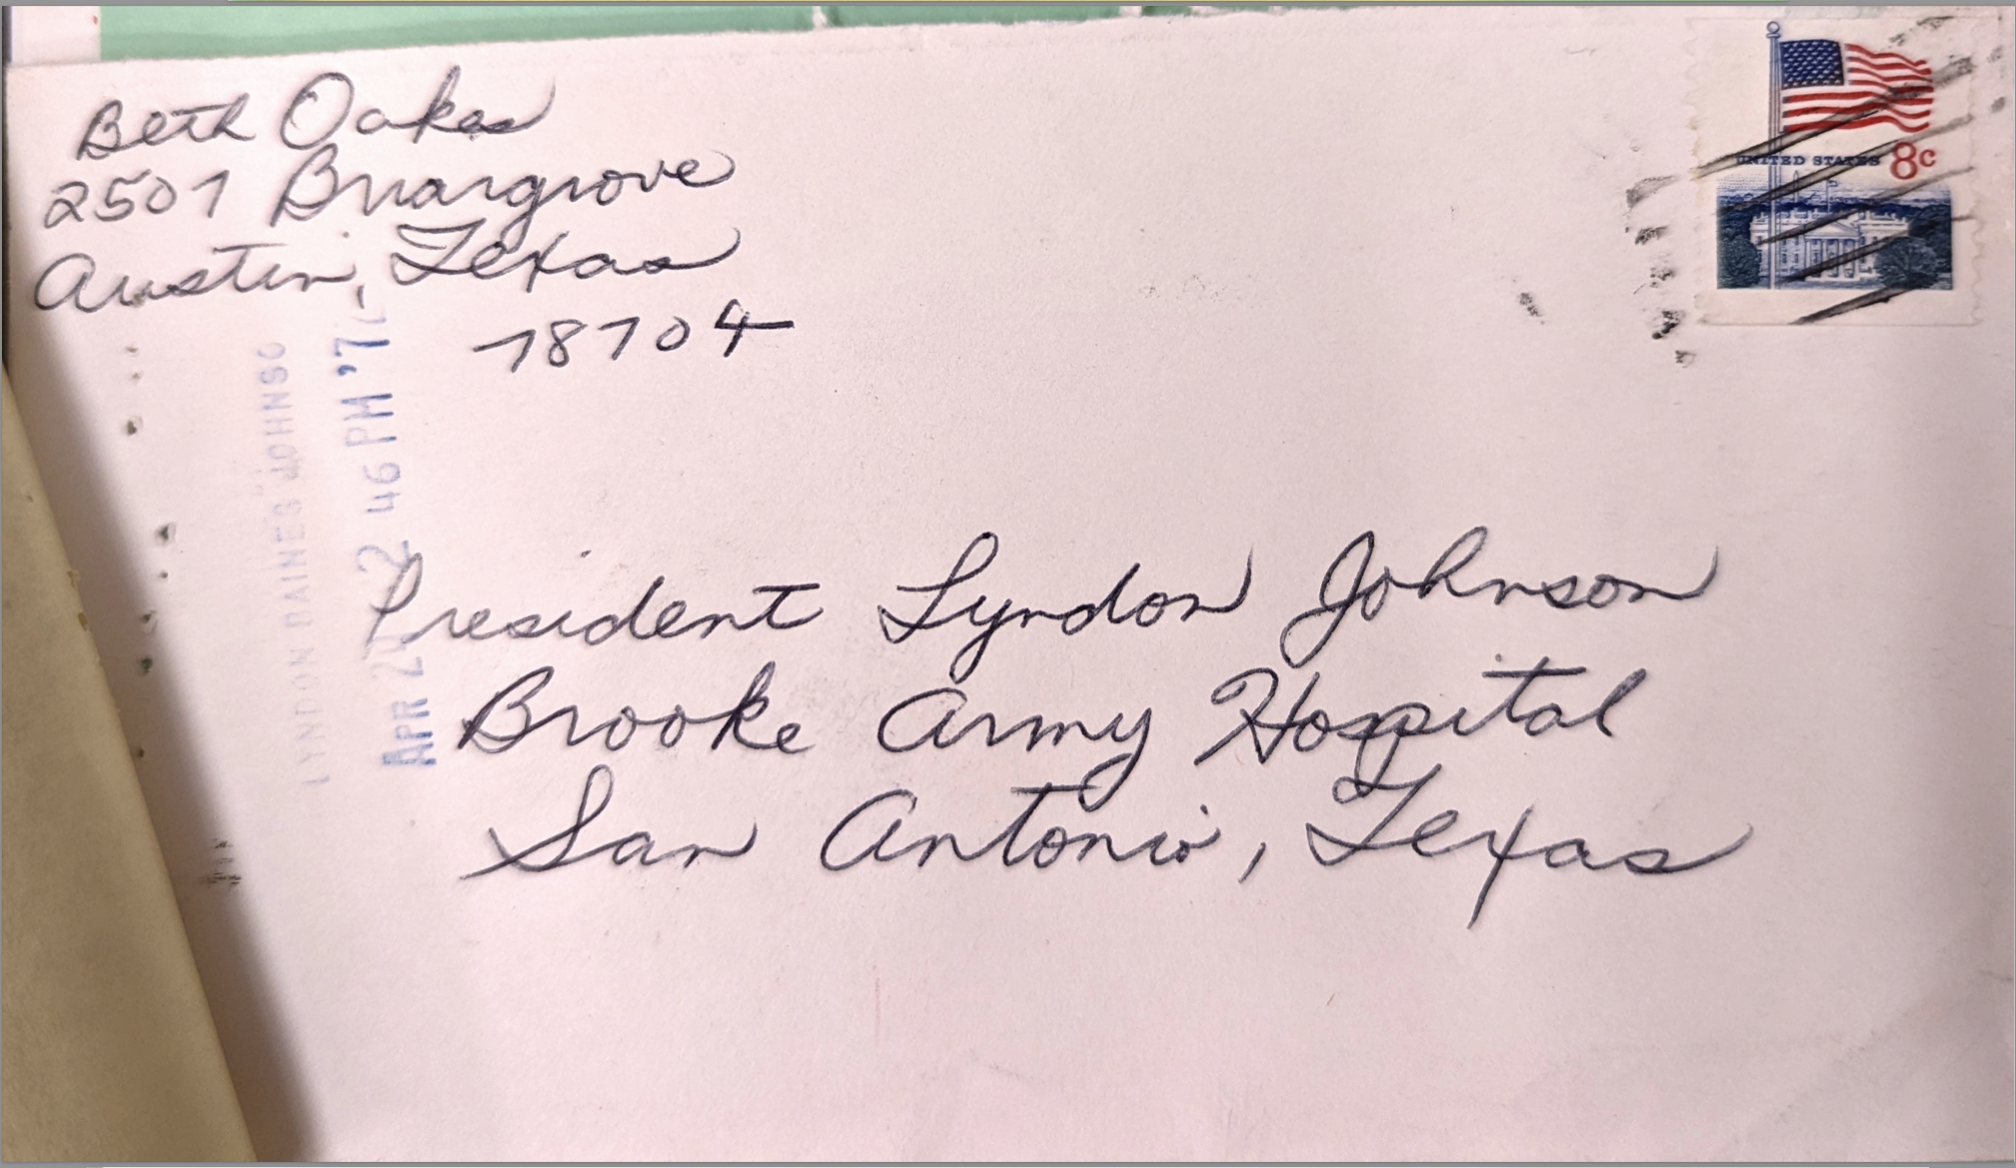 Beth Oakes
2507 Briargrove
Austin, Texas
78704
UNITED STATES 8c
LYNDON BAINES JOHNSO
APR 2 46 PM '7
President Lyndon Johnson
Brooke Army Hospital
San Antonio, Texas